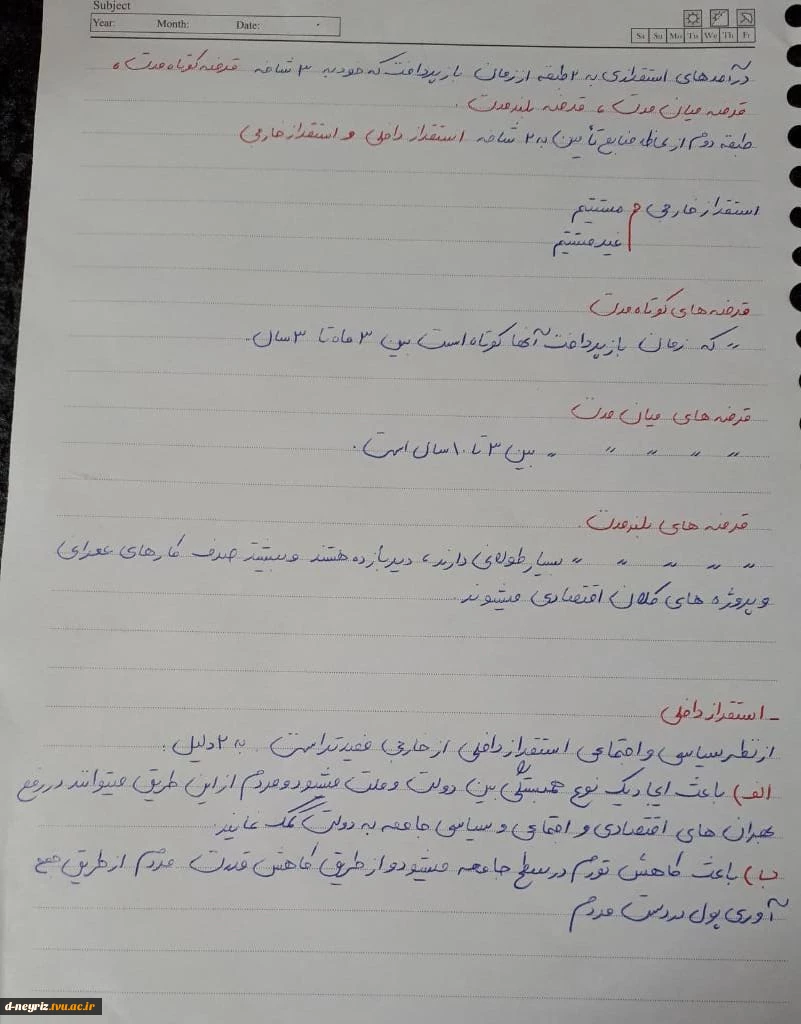 Subject
Year: Month: Date:
Sa Su Mo Tu We Th Fr
درآمدهای استقراضی به ۲ طبقه از زمان بازپرداخت که خود به ۳ شاخه قرضه کوتاه مدت،
قرضه میان مدت، قرضه بلندمدت.
طبقه دوم از لحاظ منابع تأمین به ۲ شاخه استقراز داخلی و استقراز خارجی
استقراز خارجی مستقیم
غیرمستقیم
قرضه های کوتاه مدت
〃 که زمان بازپرداخت آنها کوتاه است بین ۳ ماه تا ۳ سال.
قرضه های میان مدت
〃 〃 〃 〃 〃 بین ۳ تا ۱۰ سال است.
قرضه های بلندمدت.
〃 〃 〃 〃 〃 بسیار طولانی دارند، دیربازده هستند و بیشتر صرف کارهای عمرانی
و پروژه های کلان اقتصادی میشوند.
- استقراز داخلی
از نظر سیاسی و اجتماعی استقراز داخلی از خارجی مفیدتر است. به ۲ دلیل:
الف) باعث ایجاد یک نوع همبستگی بین دولت و ملت میشود و مردم از این طریق میتوانند در رفع
بحران های اقتصادی و اجتماعی و سیاسی جامعه به دولت کمک نمایند.
ب) باعث کاهش تورم در سطح جامعه میشود و از طریق کاهش قدرت مردم از طریق جمع
آوری پول در دست مردم
d-neyriz.tvu.ac.ir